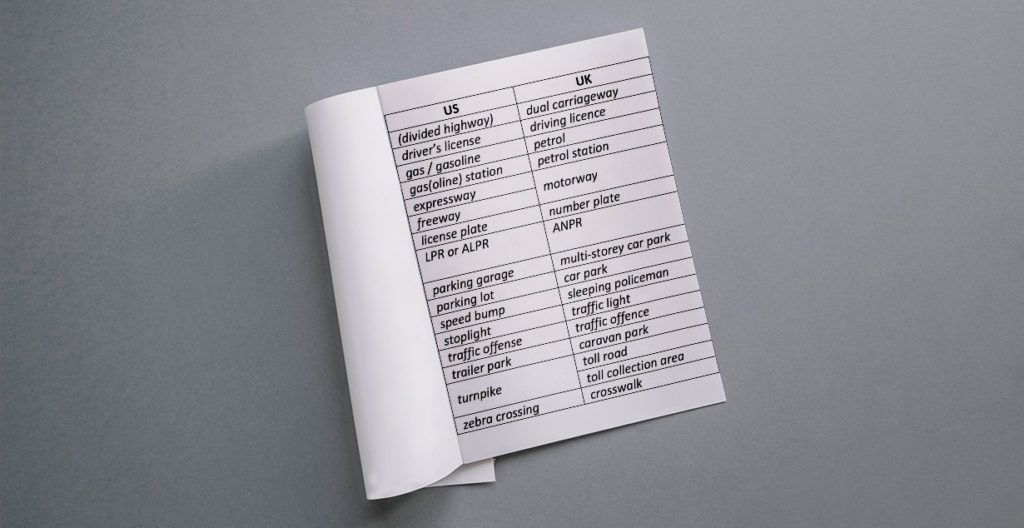 US UK
(divided highway) dual carriageway
driver's license driving licence
gas / gasoline petrol
gas(oline) station petrol station
expressway motorway
freeway
license plate number plate
LPR or ALPR ANPR
parking garage multi-storey car park
parking lot car park
speed bump sleeping policeman
stoplight traffic light
traffic offense traffic offence
trailer park caravan park
turnpike toll road
toll collection area
zebra crossing crosswalk